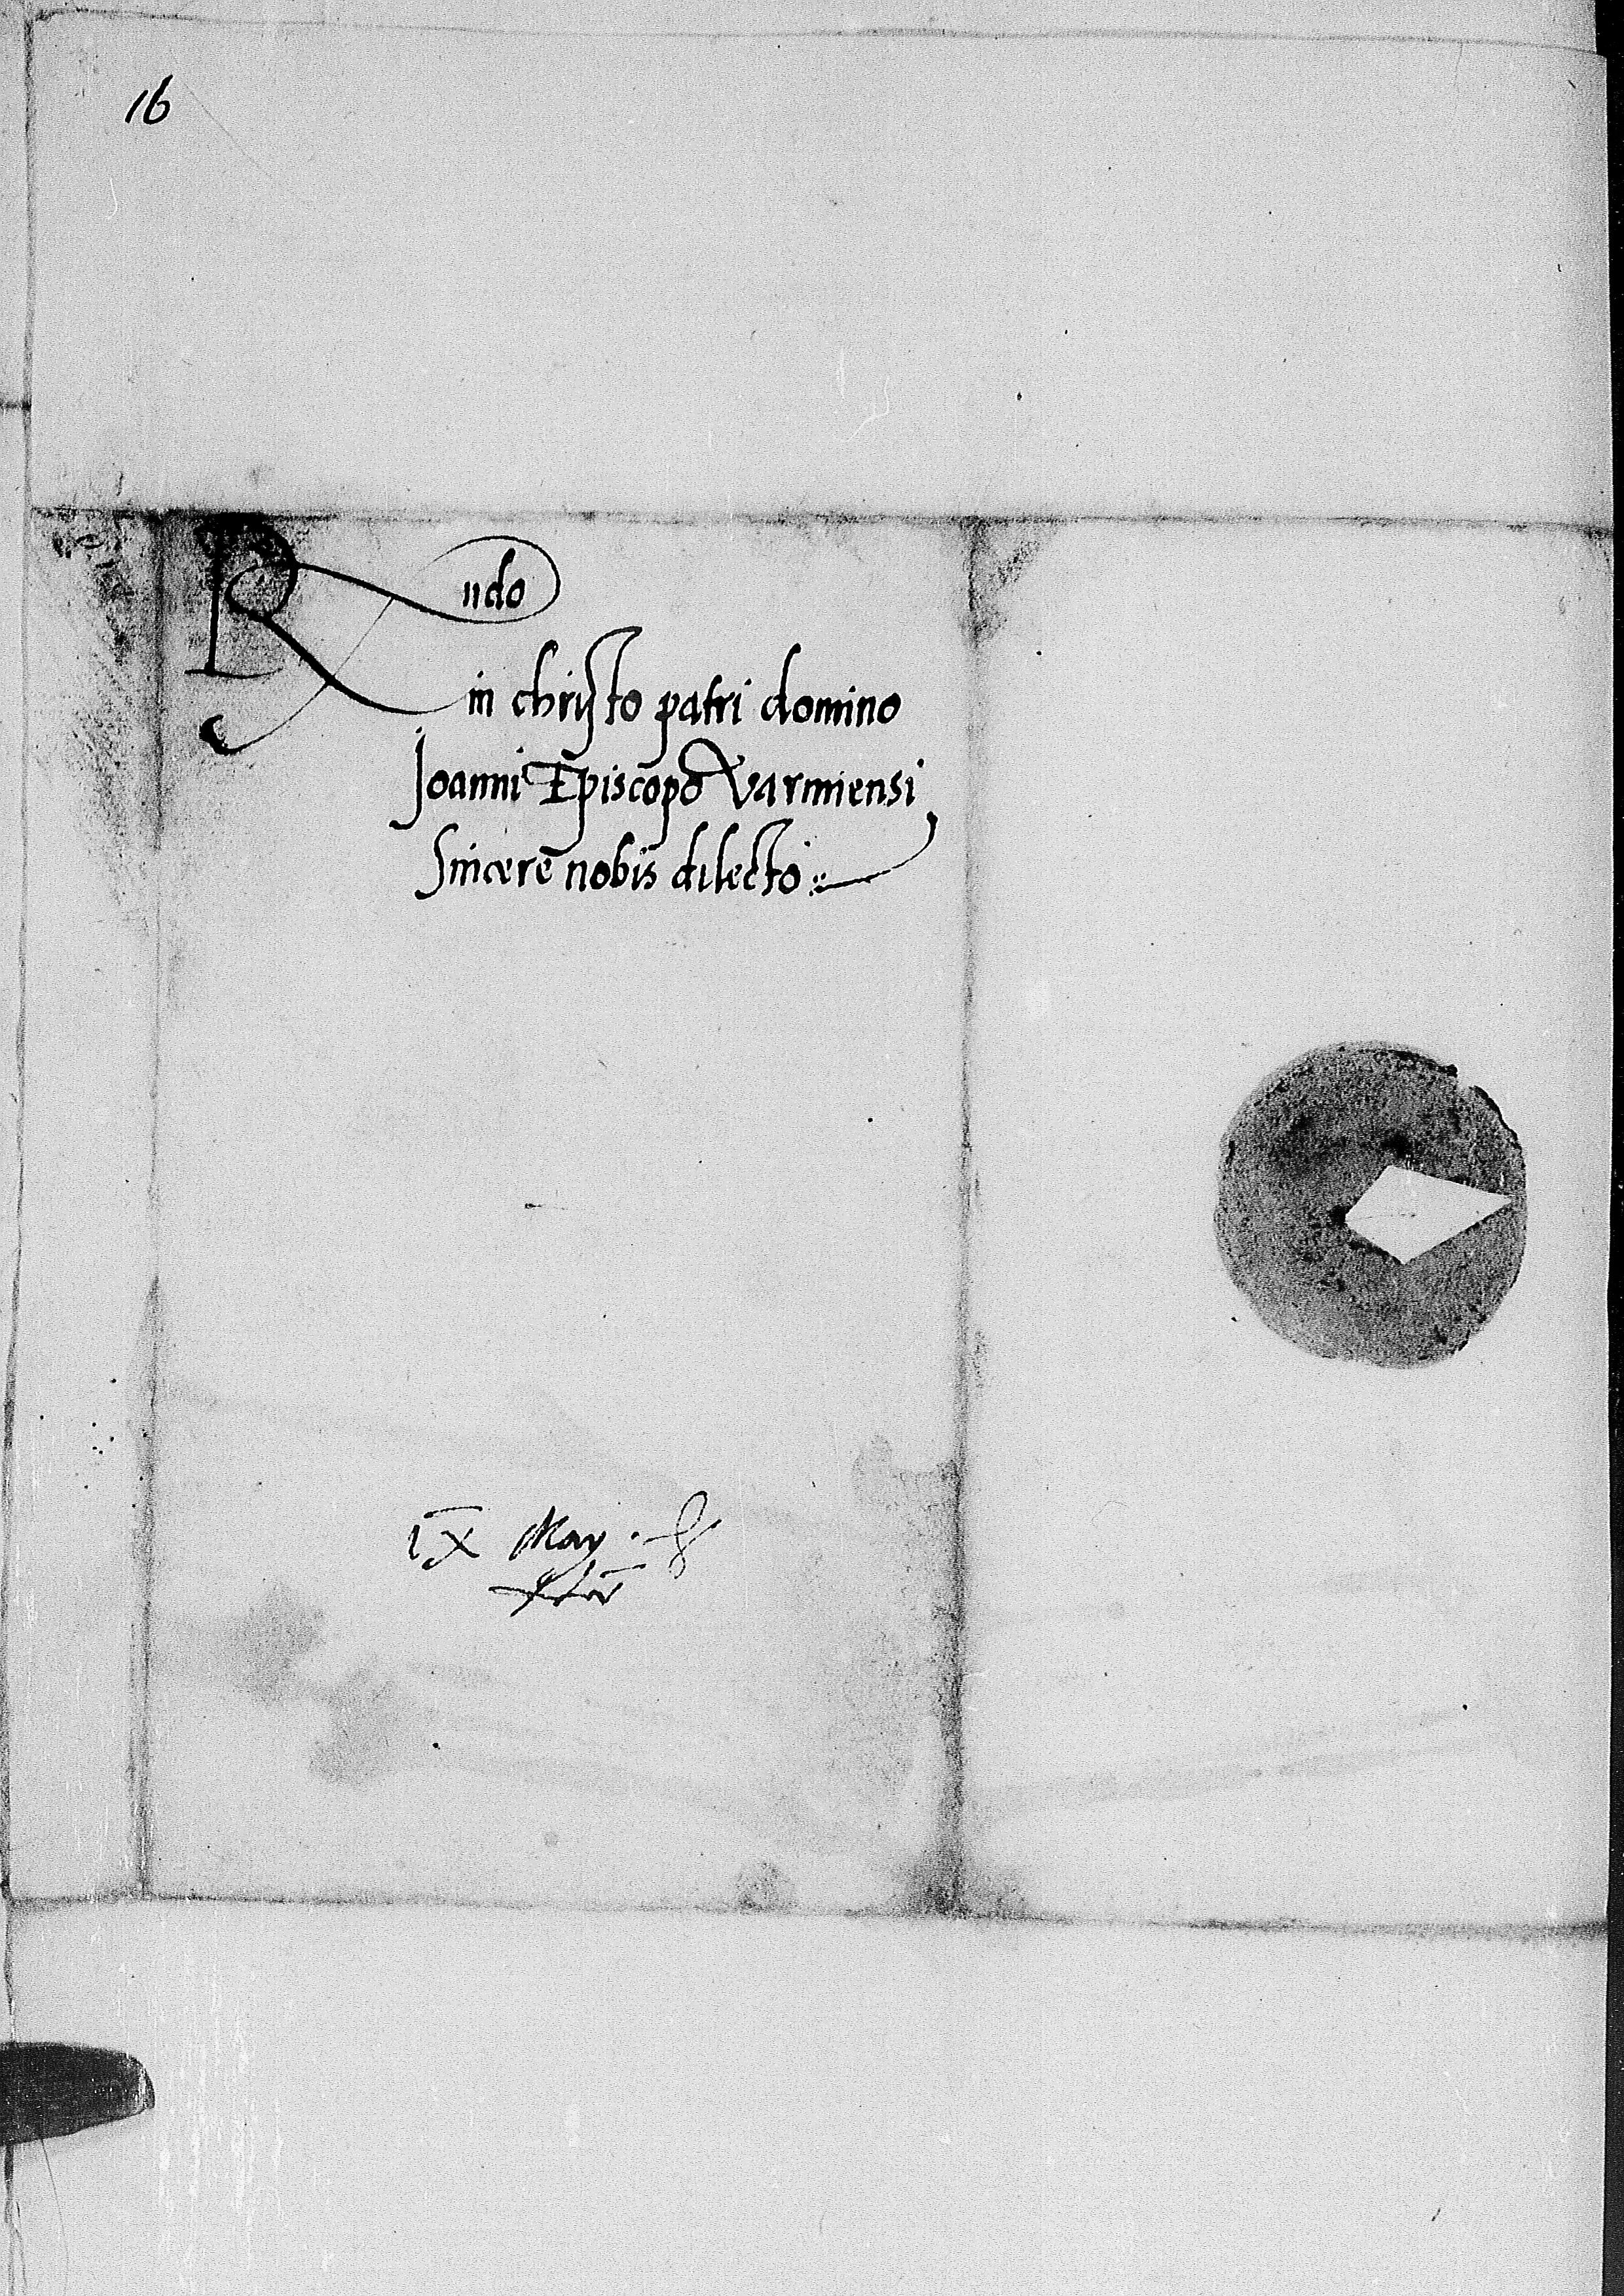 16
Rndo
in christo patri domino
Joanni Episcopo Varmiensi
Sincere nobis dilecto
IX May